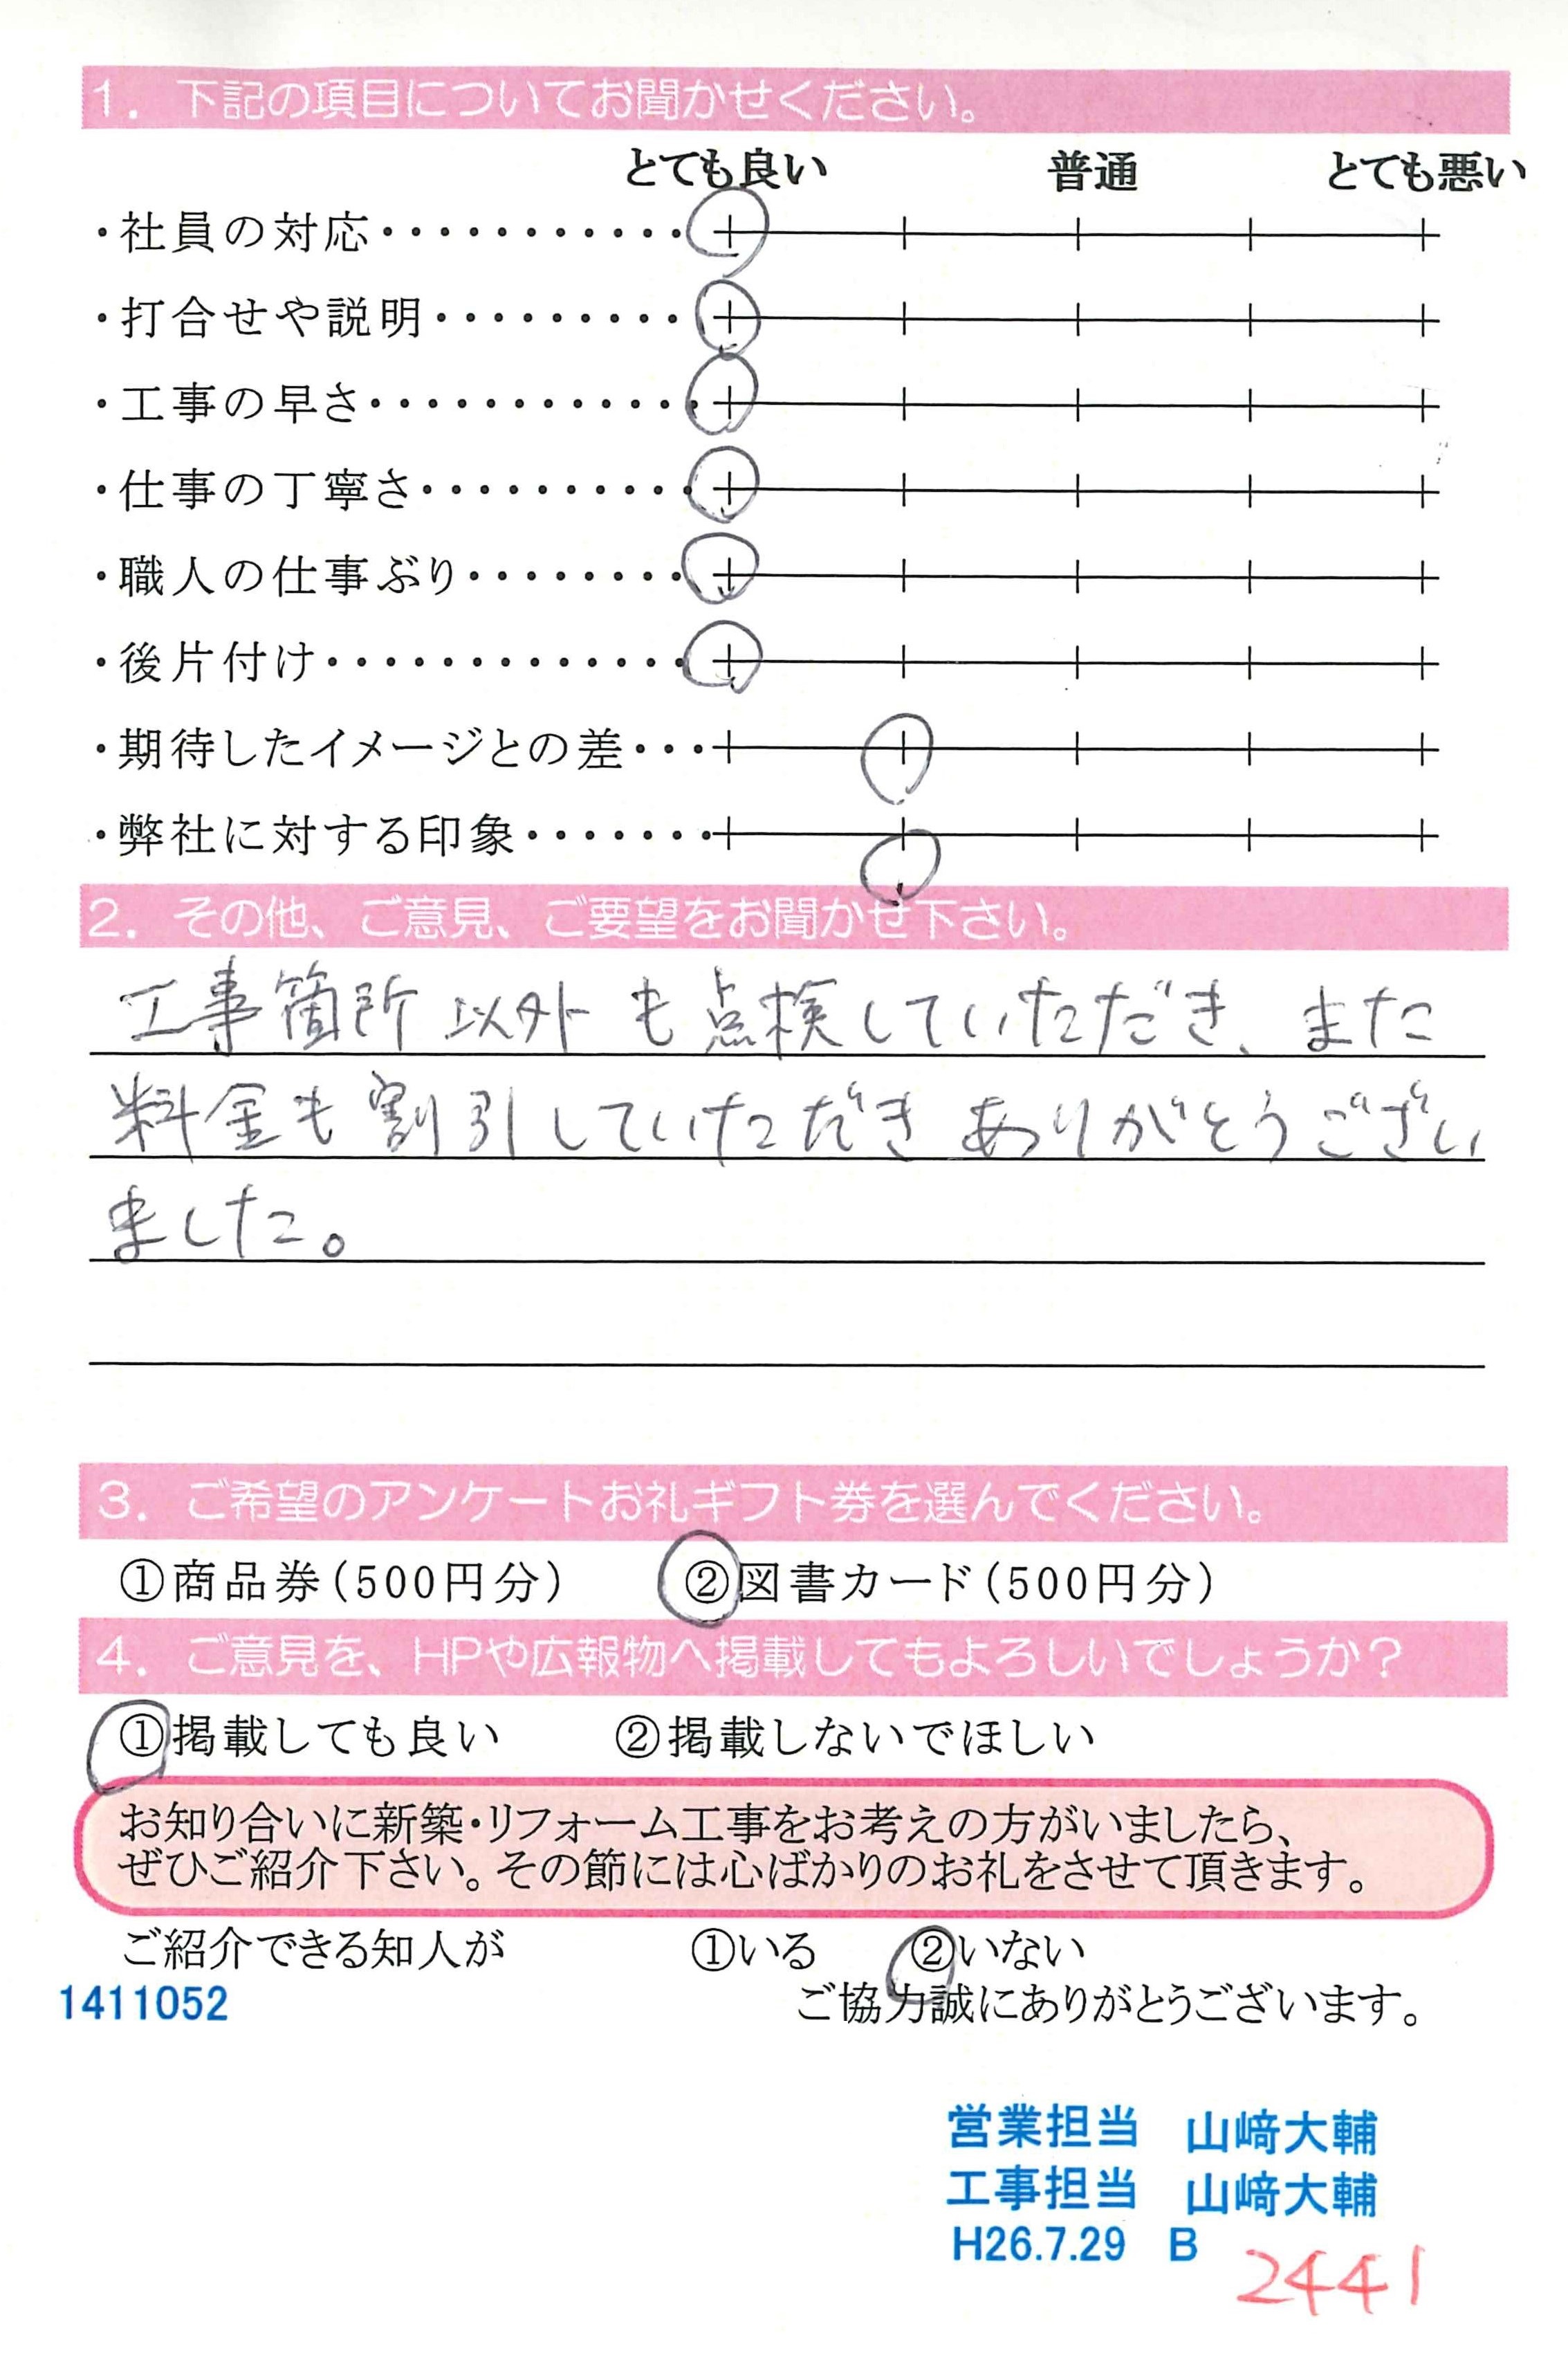 1. 下記の項目についてお聞かせください。
とても良い 普通 とても悪い
・社員の対応・・・・・・・・・・・
・打合せや説明・・・・・・・・・
・工事の早さ・・・・・・・・・・・・
・仕事の丁寧さ・・・・・・・・・・
・職人の仕事ぶり・・・・・・・・
・後片付け・・・・・・・・・・・・・
・期待したイメージとの差・・・
・弊社に対する印象・・・・・・・
2. その他、ご意見、ご要望をお聞かせ下さい。
工事箇所以外も点検していただき、また
料金も割引していただきありがとうござい
ました。
3. ご希望のアンケートお礼ギフト券を選んでください。
①商品券(500円分) ②図書カード(500円分)
4. ご意見を、HPや広報物へ掲載してもよろしいでしょうか?
①掲載しても良い ②掲載しないでほしい
お知り合いに新築・リフォーム工事をお考えの方がいましたら、
ぜひご紹介下さい。その節には心ばかりのお礼をさせて頂きます。
ご紹介できる知人が ①いる ②いない
1411052 ご協力誠にありがとうございます。
営業担当 山﨑大輔
工事担当 山﨑大輔
H26.7.29 B
2441